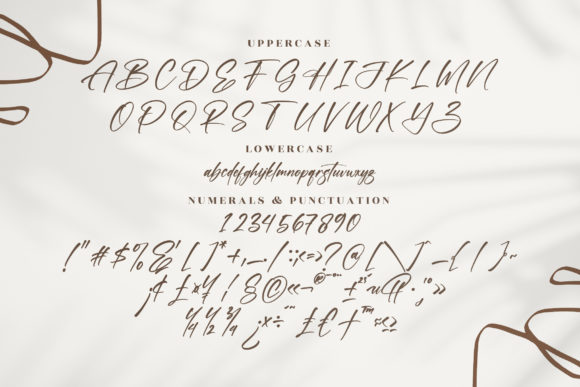 UPPERCASE
ABCDEFGHIJKLMN
OPQRSTUVWXYZ
LOWERCASE
abcdefghijklmnopqrstuvwxyz
NUMERALS & PUNCTUATION
1234567890
!"#$%&'[]*+,_./:;<=>?@[\]_{|}~
¡¢£¤¥¦§©«¬®
¼½¾¿×÷